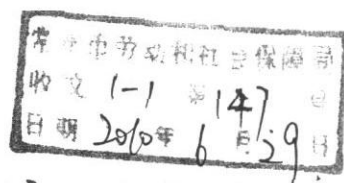 常 市劳动和社会保障局
收文 1-1 第147号
日期 2010年6月29日